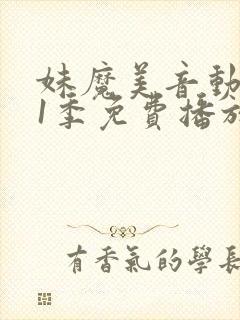 妹魔美音動
1季免費播放
有香氣的學長